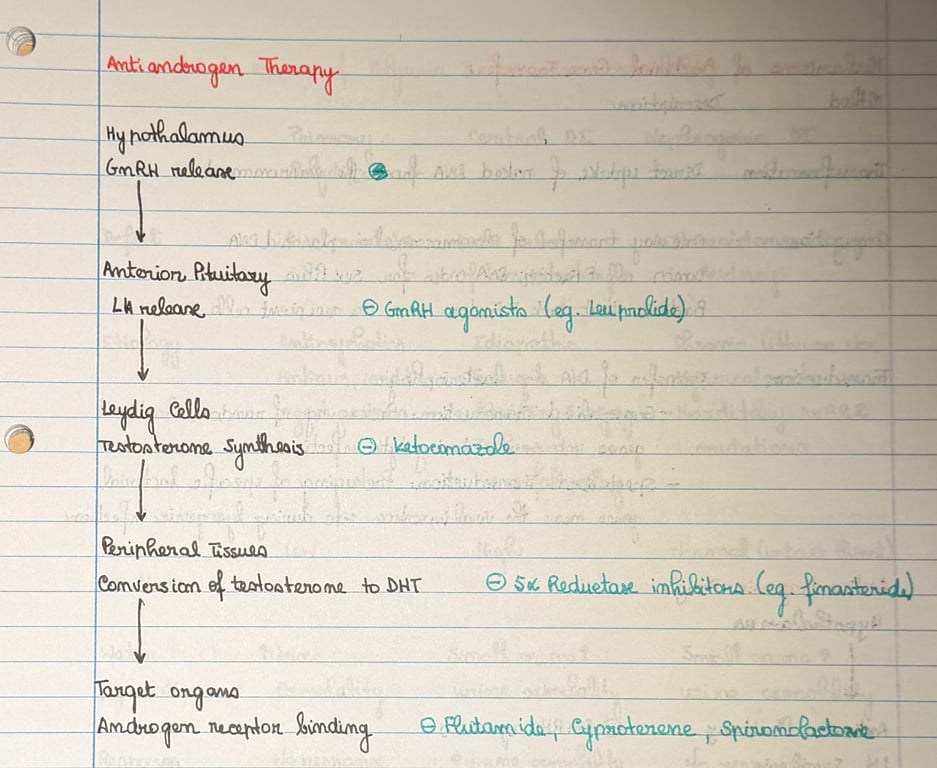 Antiandrogen Therapy
Hypothalamus
GnRH release
Anterior Pituitary
LH release ⊖ GnRH agonists (eg. Leuprolide)
Leydig Cells
Testosterone Synthesis ⊖ ketoconazole
Peripheral Tissues
Conversion of testosterone to DHT ⊖ 5α Reductase inhibitors (eg. finasteride)
Target organs
Androgen receptor binding ⊖ Flutamide, Cyproterene, Spironolactone